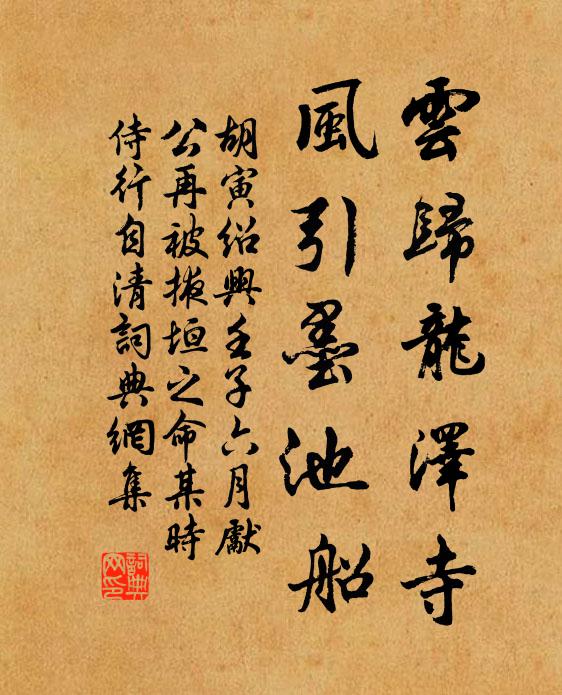 雲歸龍澤寺
風引墨池船
胡寅紹興壬子六月獻
公再被掖垣之命某時
侍行自清詞典網集
詞典
网印